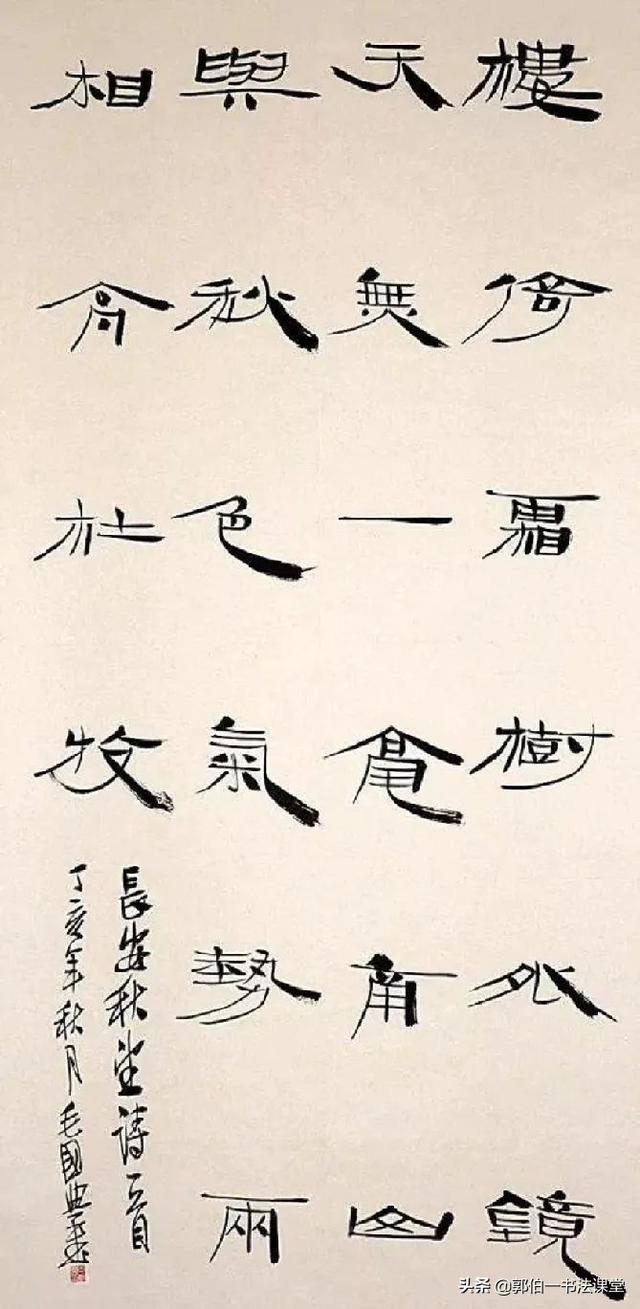 樓倚霜樹外鏡
天無一毫南山
與秋色氣勢兩
相高杜牧
長安秋望詩一首
丁亥年秋月毛國典書
头条 @郭伯一书法课堂